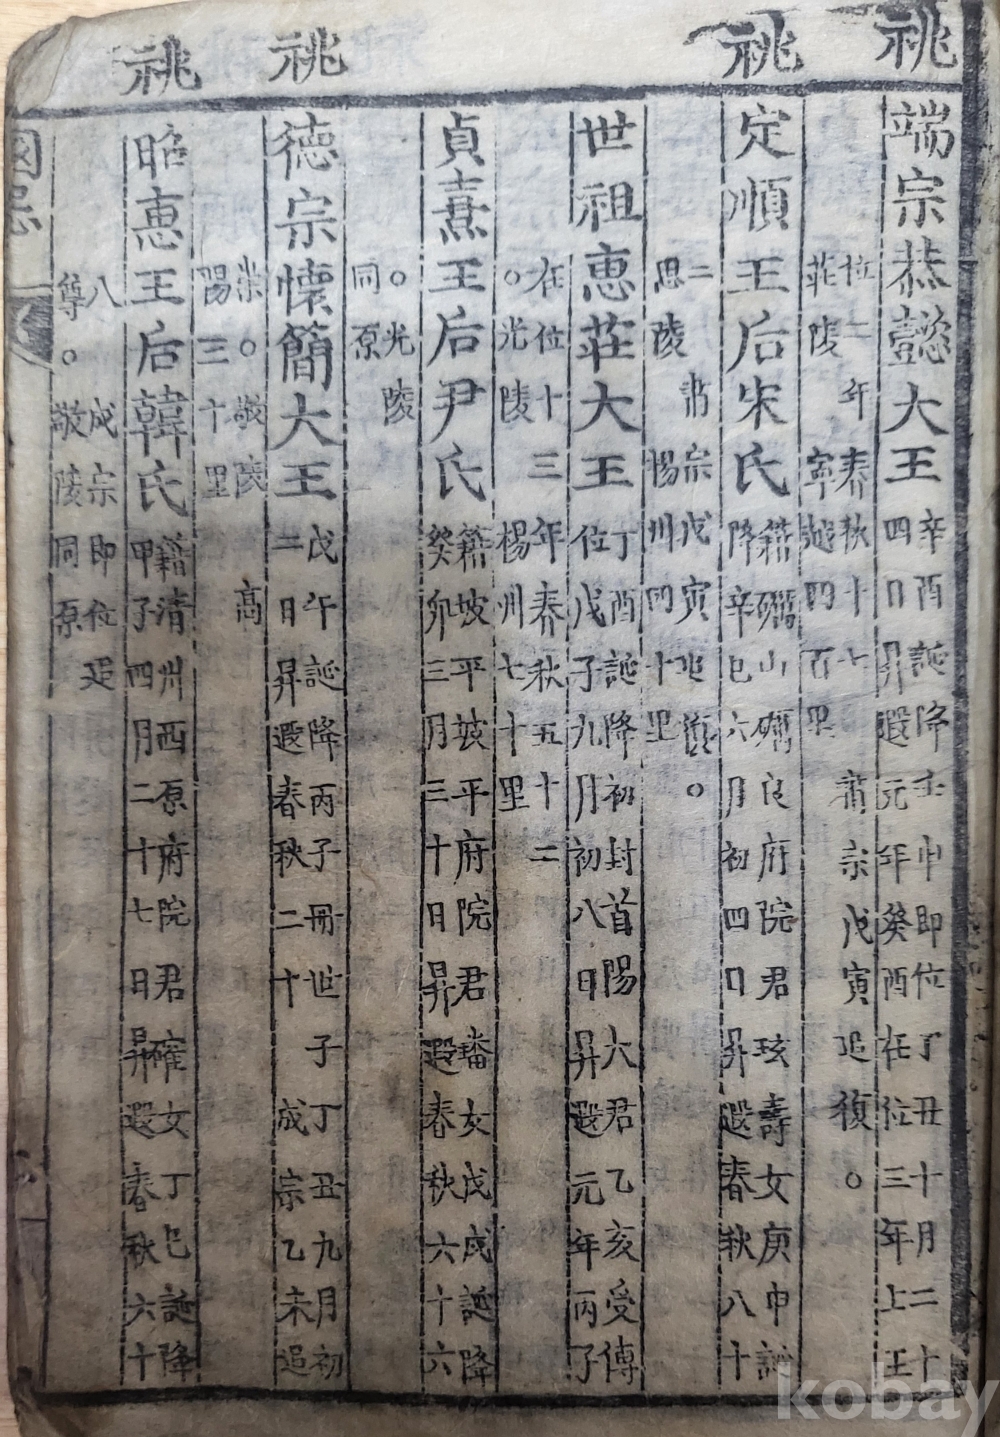 祧
端宗恭懿大王
辛酉誕降壬申即位丁丑十月二十
四日昇遐元年癸酉在位三年上王
位二年春秋十七 肅宗戊寅追復○
莊陵 寧越四百里
祧
定順王后宋氏
籍礪山礪良府院君玹壽女庚申誕
降辛巳六月初四日昇遐春秋八十
二 肅宗戊寅追復○
思陵 楊州四十里
世祖惠莊大王
丁酉誕降初封首陽大君乙亥受傳
位戊子九月初八日昇遐元年丙子
在位十三年春秋五十二
○光陵 楊州七十里
貞熹王后尹氏
籍坡平坡平府院君璠女戊戌誕降
癸卯三月三十日昇遐春秋六十六
○光陵
同原
祧
德宗懷簡大王
戊午誕降丙子冊世子丁丑九月初
二日昇遐春秋二十 成宗乙未追
崇○敬陵 高
陽三十里
祧
昭惠王后韓氏
籍清州西原府院君確女丁巳誕降
甲子四月二十七日昇遐春秋六十
八 成宗即位追
尊○敬陵同原
國忌
kobay